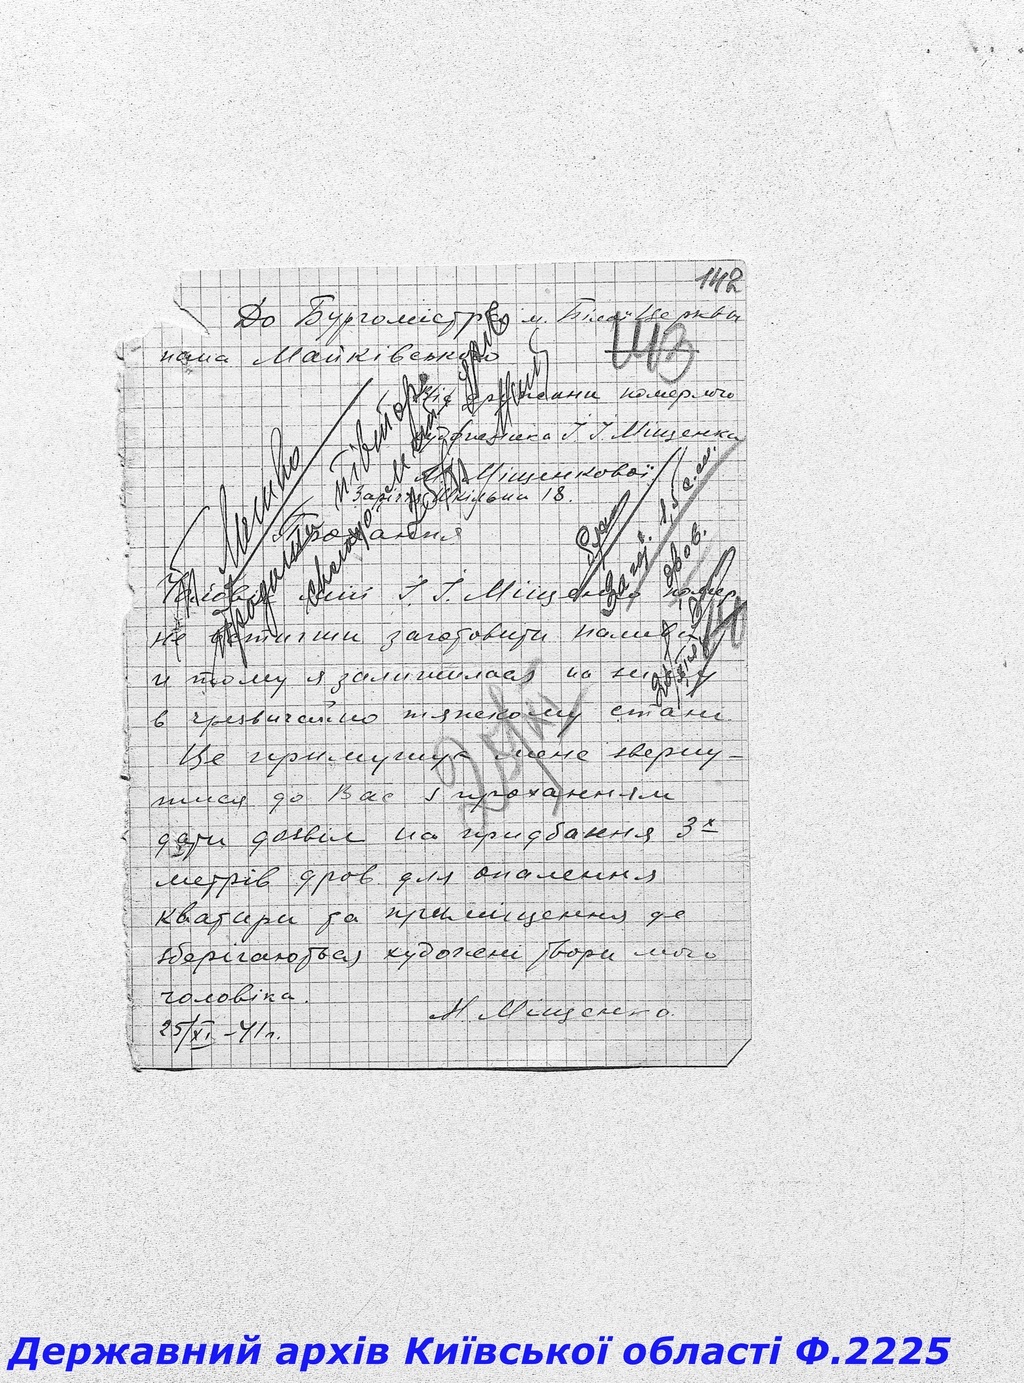 142
До Бургомістра м. Білої Церкви
пана Майківського
143
Від дружини померлого
художника І. І. Міщенка
М. Міщенкової
Заріччя Шкільна 18.
Прохання
Чоловік мій І. І. Міщенко помер
не встигши заготовити палива
и тому я залишилася на зиму
в чрезвичайно тяжкому стані.
Це примушує мене зверну-
тися до Вас з проханням
дати дозвіл на придбання 3х
метрів дров для опалення
кватири та приміщення де
зберігаються художні твори мого
чоловіка.
М. Міщенко
25/XI -41 р.
продати півтора
25/XI
Державний архів Київської області Ф.2225